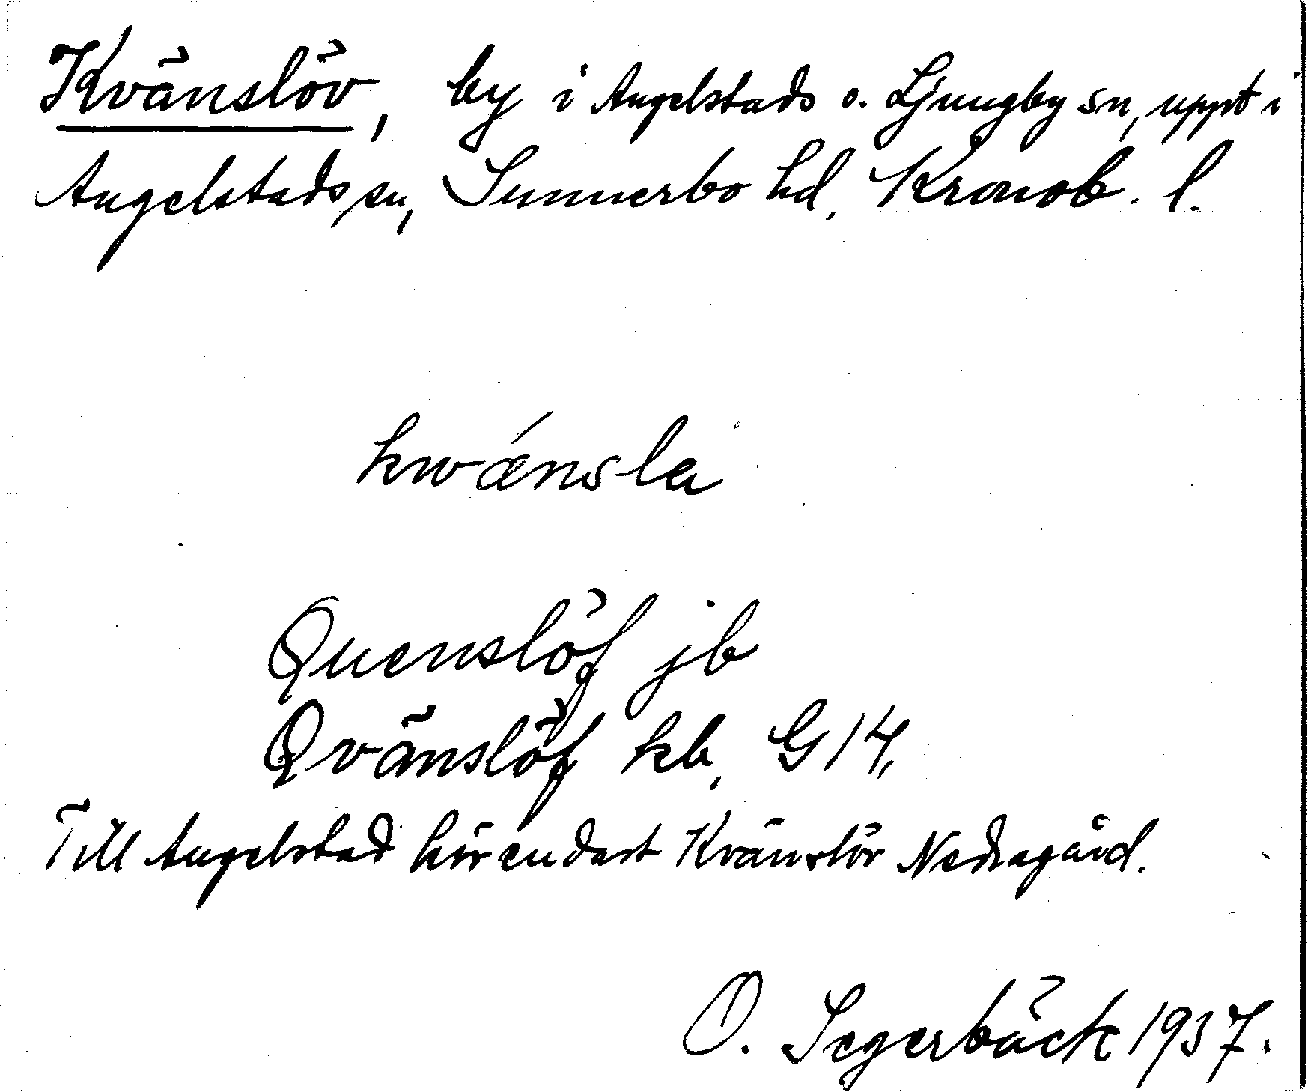 Kvänslöv, by i Angelstads o. Ljungby sn, uppt i
Angelstads sn, Sunnerbo hd, Kronob. l.
kwǽnsla
Quenslöf jb
Qvänslöf kb, G14,
Till Angelstad hör endast Kvänslöv Nedragård.
O. Segerbäck 1937.